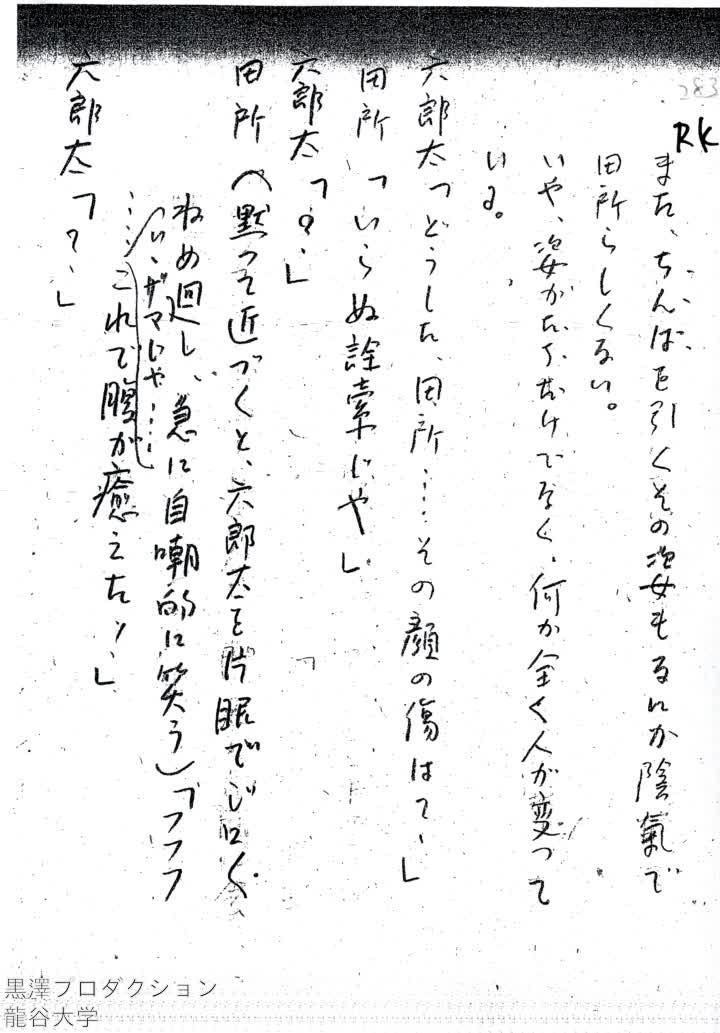 283
RK
また、ちんばを引くその姿もなにか陰氣で
田所らしくない。
いや、姿かたちだけでなく、何か全く人が変って
いる。
六郎太「どうした、田所……その顔の傷は?」
田所「いらぬ詮索じや」
六郎太「?」
田所(黙って近づくと、六郎太を片眼でじろ〱
ねめ回し、急に自嘲的に笑う)「フフフ
……いゝザマじゃ……
これで腹が癒えたッ」
六郎太「?」
黒澤プロダクション
龍谷大学